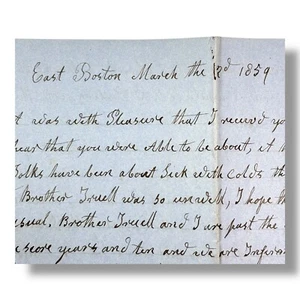 East Boston March the 2d 1859
t was with Pleasure that I received yo
hear that you were Able to be about, it h
Folks have been about Sick with colds th
Brother Truell was so unwell, I hope th
usual. Brother Truell and I are past the
score years and ten and we are Infirm